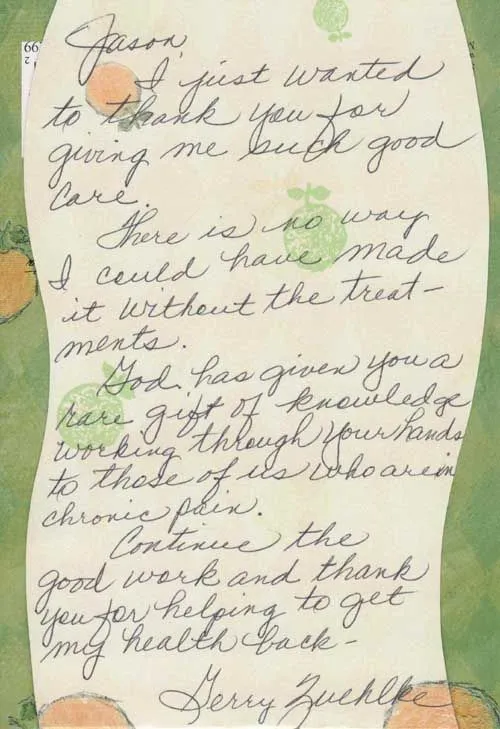 Jason,
I just wanted
to thank you for
giving me such good
care.
There is no way
I could have made
it without the treat-
ments.
God has given you a
rare gift of knowledge
working through your hands
to those of us who are in
chronic pain.
Continue the
good work and thank
you for helping to get
my health back-
Gerry Zuehlke